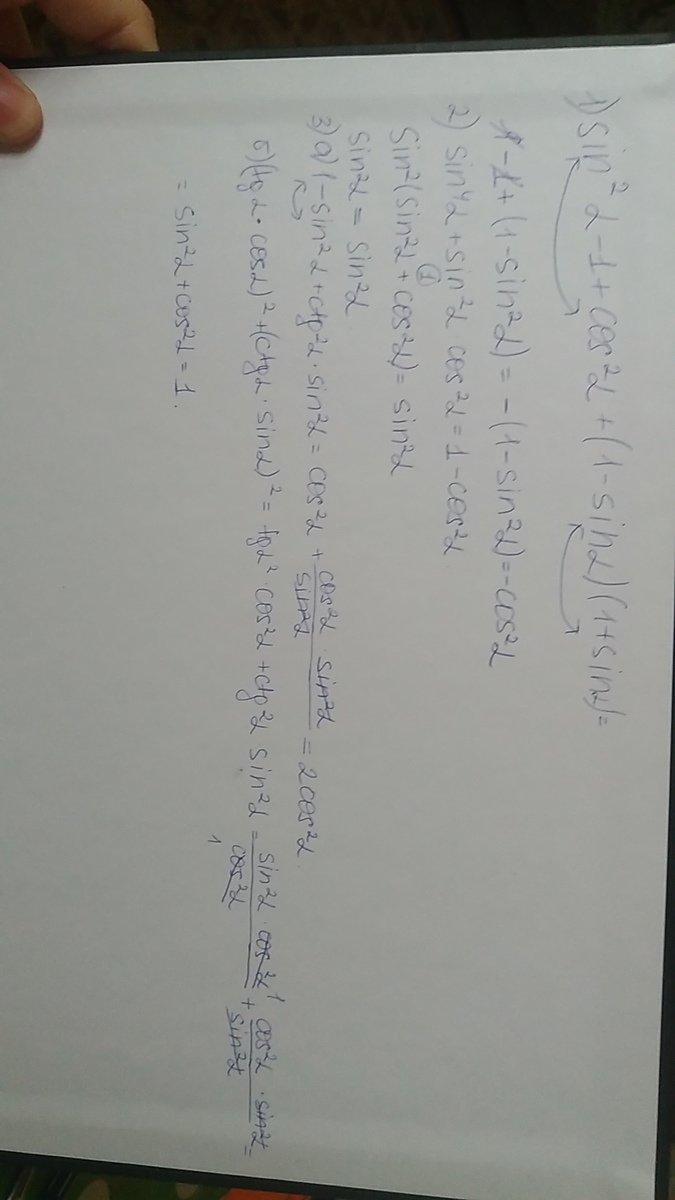 1) sin²α - 1 + cos²α + (1 - sinα)(1 + sinα) =
1 - 1 + (1 - sin²α) = -(1 - sin²α) = -cos²α
2) sin⁴α + sin²α cos²α = 1 - cos²α.
1
Sin²(sin²α + cos²α) = sin²α
sin²α = sin²α
3) а) 1 - sin²α + ctg²α · sin²α = cos²α + cos²α · sin²α / sin²α = 2cos²α.
б) (tgα · cosα)² + (ctgα · sinα)² = tgα² · cos²α + ctg²α sin²α = sin²α · cos²α / cos²α + cos²α · sin²α / sin²α =
= sin²α + cos²α = 1.